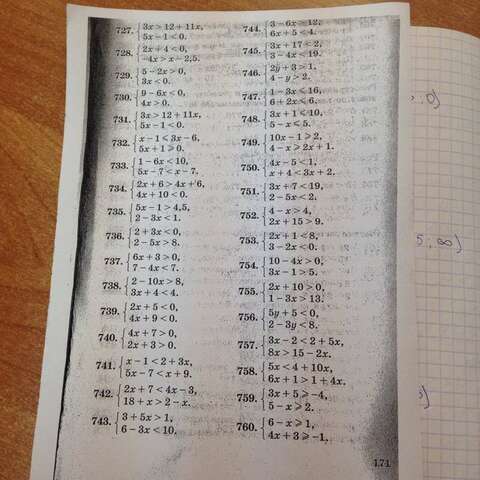 727. 3x > 12 + 11x,
5x − 1 < 0.
728. 2x + 4 < 0,
−4x > x − 2,5.
729. 5 − 2x > 0,
3x < 0.
730. 9 − 6x < 0,
4x > 0.
731. 3x > 12 + 11x,
5x − 1 < 0.
732. x − 1 < 3x − 6,
5x + 1 ⩾ 0.
733. 1 − 6x < 10,
5x − 7 < x − 7.
734. 2x + 6 > 4x + 6,
4x + 10 < 0.
735. 5x − 1 > 4,5,
2 − 3x < 1.
736. 2 + 3x < 0,
2 − 5x > 8.
737. 6x + 3 > 0,
7 − 4x < 7.
738. 2 − 10x > 8,
3x + 4 < 4.
739. 2x + 5 < 0,
4x + 9 < 0.
740. 4x + 7 > 0,
2x + 3 > 0.
741. x − 1 < 2 + 3x,
5x − 7 < x + 9.
742. 2x + 7 < 4x − 3,
18 + x > 2 − x.
743. 3 + 5x > 1,
6 − 3x < 10.
744. 3 − 6x > 12,
6x + 5 < 4.
745. 3x + 17 < 2,
3 − 4x < 19.
746. 2y + 3 > 1,
4 − y > 2.
747. 1 − 3x < 16,
6 + 2x < 6.
748. 3x + 1 < 10,
5 − x < 5.
749. 10x − 1 ⩾ 2,
4 − x ⩾ 2x + 1.
750. 4x − 5 < 1,
x + 4 < 3x + 2.
751. 3x + 7 < 19,
2 − 5x < 2.
752. 4 − x > 4,
2x + 15 > 9.
753. 2x + 1 < 8,
3 − 2x < 0.
754. 10 − 4x > 0,
3x − 1 > 5.
755. 2x + 10 > 0,
1 − 3x > 13.
756. 5y + 5 < 0,
2 − 3y < 8.
757. 3x − 2 < 2 + 5x,
8x > 15 − 2x.
758. 5x < 4 + 10x,
6x + 1 > 1 + 4x.
759. 3x + 5 ⩾ −4,
5 − x ⩾ 2.
760. 6 − x ⩾ 1,
4x + 3 ⩾ −1.
171
, 0)
5, ∞)